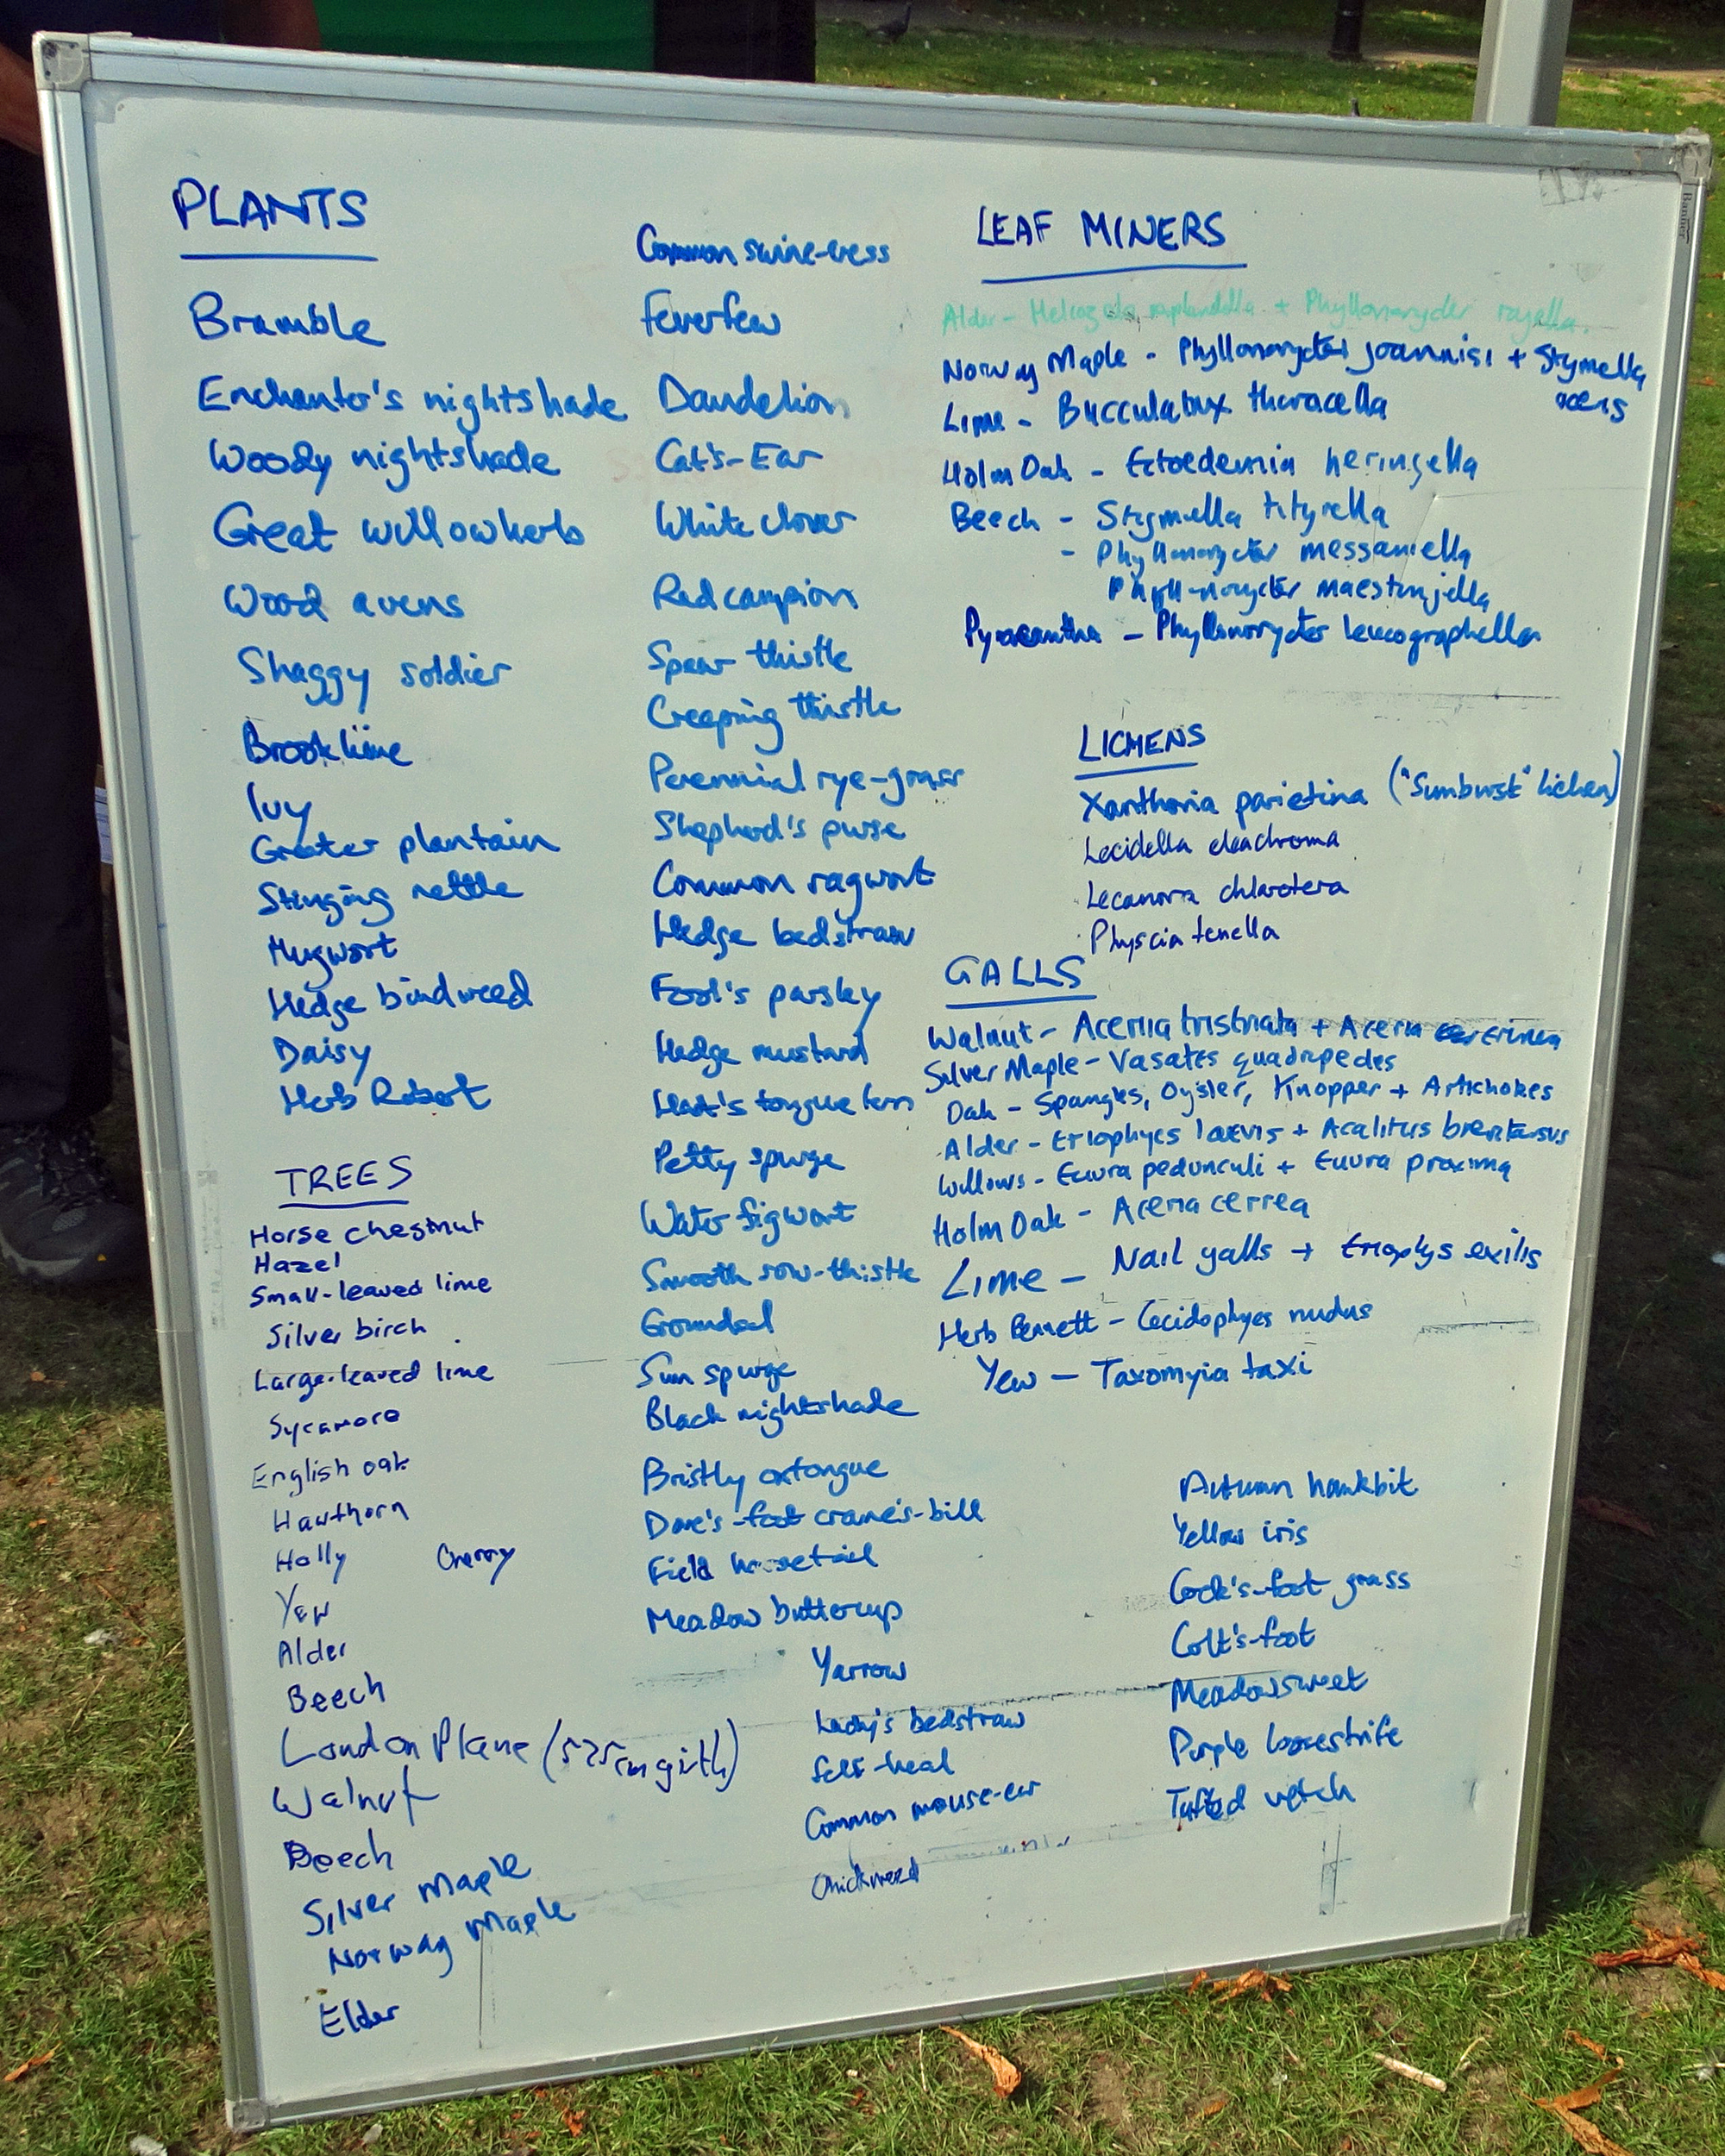 PLANTS
Bramble
Enchanter's nightshade
Woody nightshade
Great willowherb
Wood avens
Shaggy soldier
Brooklime
Ivy
Greater plantain
Stinging nettle
Mugwort
Hedge bindweed
Daisy
Herb Robert
TREES
Horse chestnut
Hazel
Small-leaved lime
Silver birch
Large-leaved lime
Sycamore
English oak
Hawthorn
Holly Cherry
Yew
Alder
Beech
London Plane (575cm girth)
Walnut
Beech
Silver Maple
Norway Maple
Elder
Common swine-cress
Feverfew
Dandelion
Cat's-Ear
White clover
Red campion
Spear thistle
Creeping thistle
Perennial rye-grass
Shepherd's purse
Common ragwort
Hedge bedstraw
Fool's parsley
Hedge mustard
Hart's tongue fern
Petty spurge
Water figwort
Smooth sow-thistle
Groundsel
Sun spurge
Black nightshade
Bristly oxtongue
Dove's-foot crane's-bill
Field horsetail
Meadow buttercup
Yarrow
Lady's bedstraw
Self-heal
Common mouse-ear
Chickweed
LEAF MINERS
Alder - + Phyllonorycter
Norway Maple - Phyllonorycter joannisi + Stigmella
aceris
Lime - Bucculatrix thoracella
Holm Oak - Ectoedemia heringella
Beech - Stigmella tityrella
- Phyllonorycter messaniella
Phyllonorycter maestingella
Pyracantha - Phyllonorycter leucographella
LICHENS
Xanthoria parietina ("Sunburst" lichen)
Lecidella elaeochroma
Lecanora chlarotera
Physcia tenella
GALLS
Walnut - Aceria tristriata + Aceria erinea
Silver Maple - Vasates quadripedes
Oak - Spangles, Oyster, Knopper + Artichokes
Alder - Eriophyes laevis + Acalitus brevitarsus
Willows - Euura pedunculi + Euura proxima
Holm Oak - Aceria cerrea
Lime - Nail galls + Eriophys exilis
Herb Bennett - Cecidophyes nudus
Yew - Taxomyia taxi
Autumn hawkbit
Yellow iris
Cock's-foot grass
Colt's-foot
Meadowsweet
Purple loosestrife
Tufted vetch